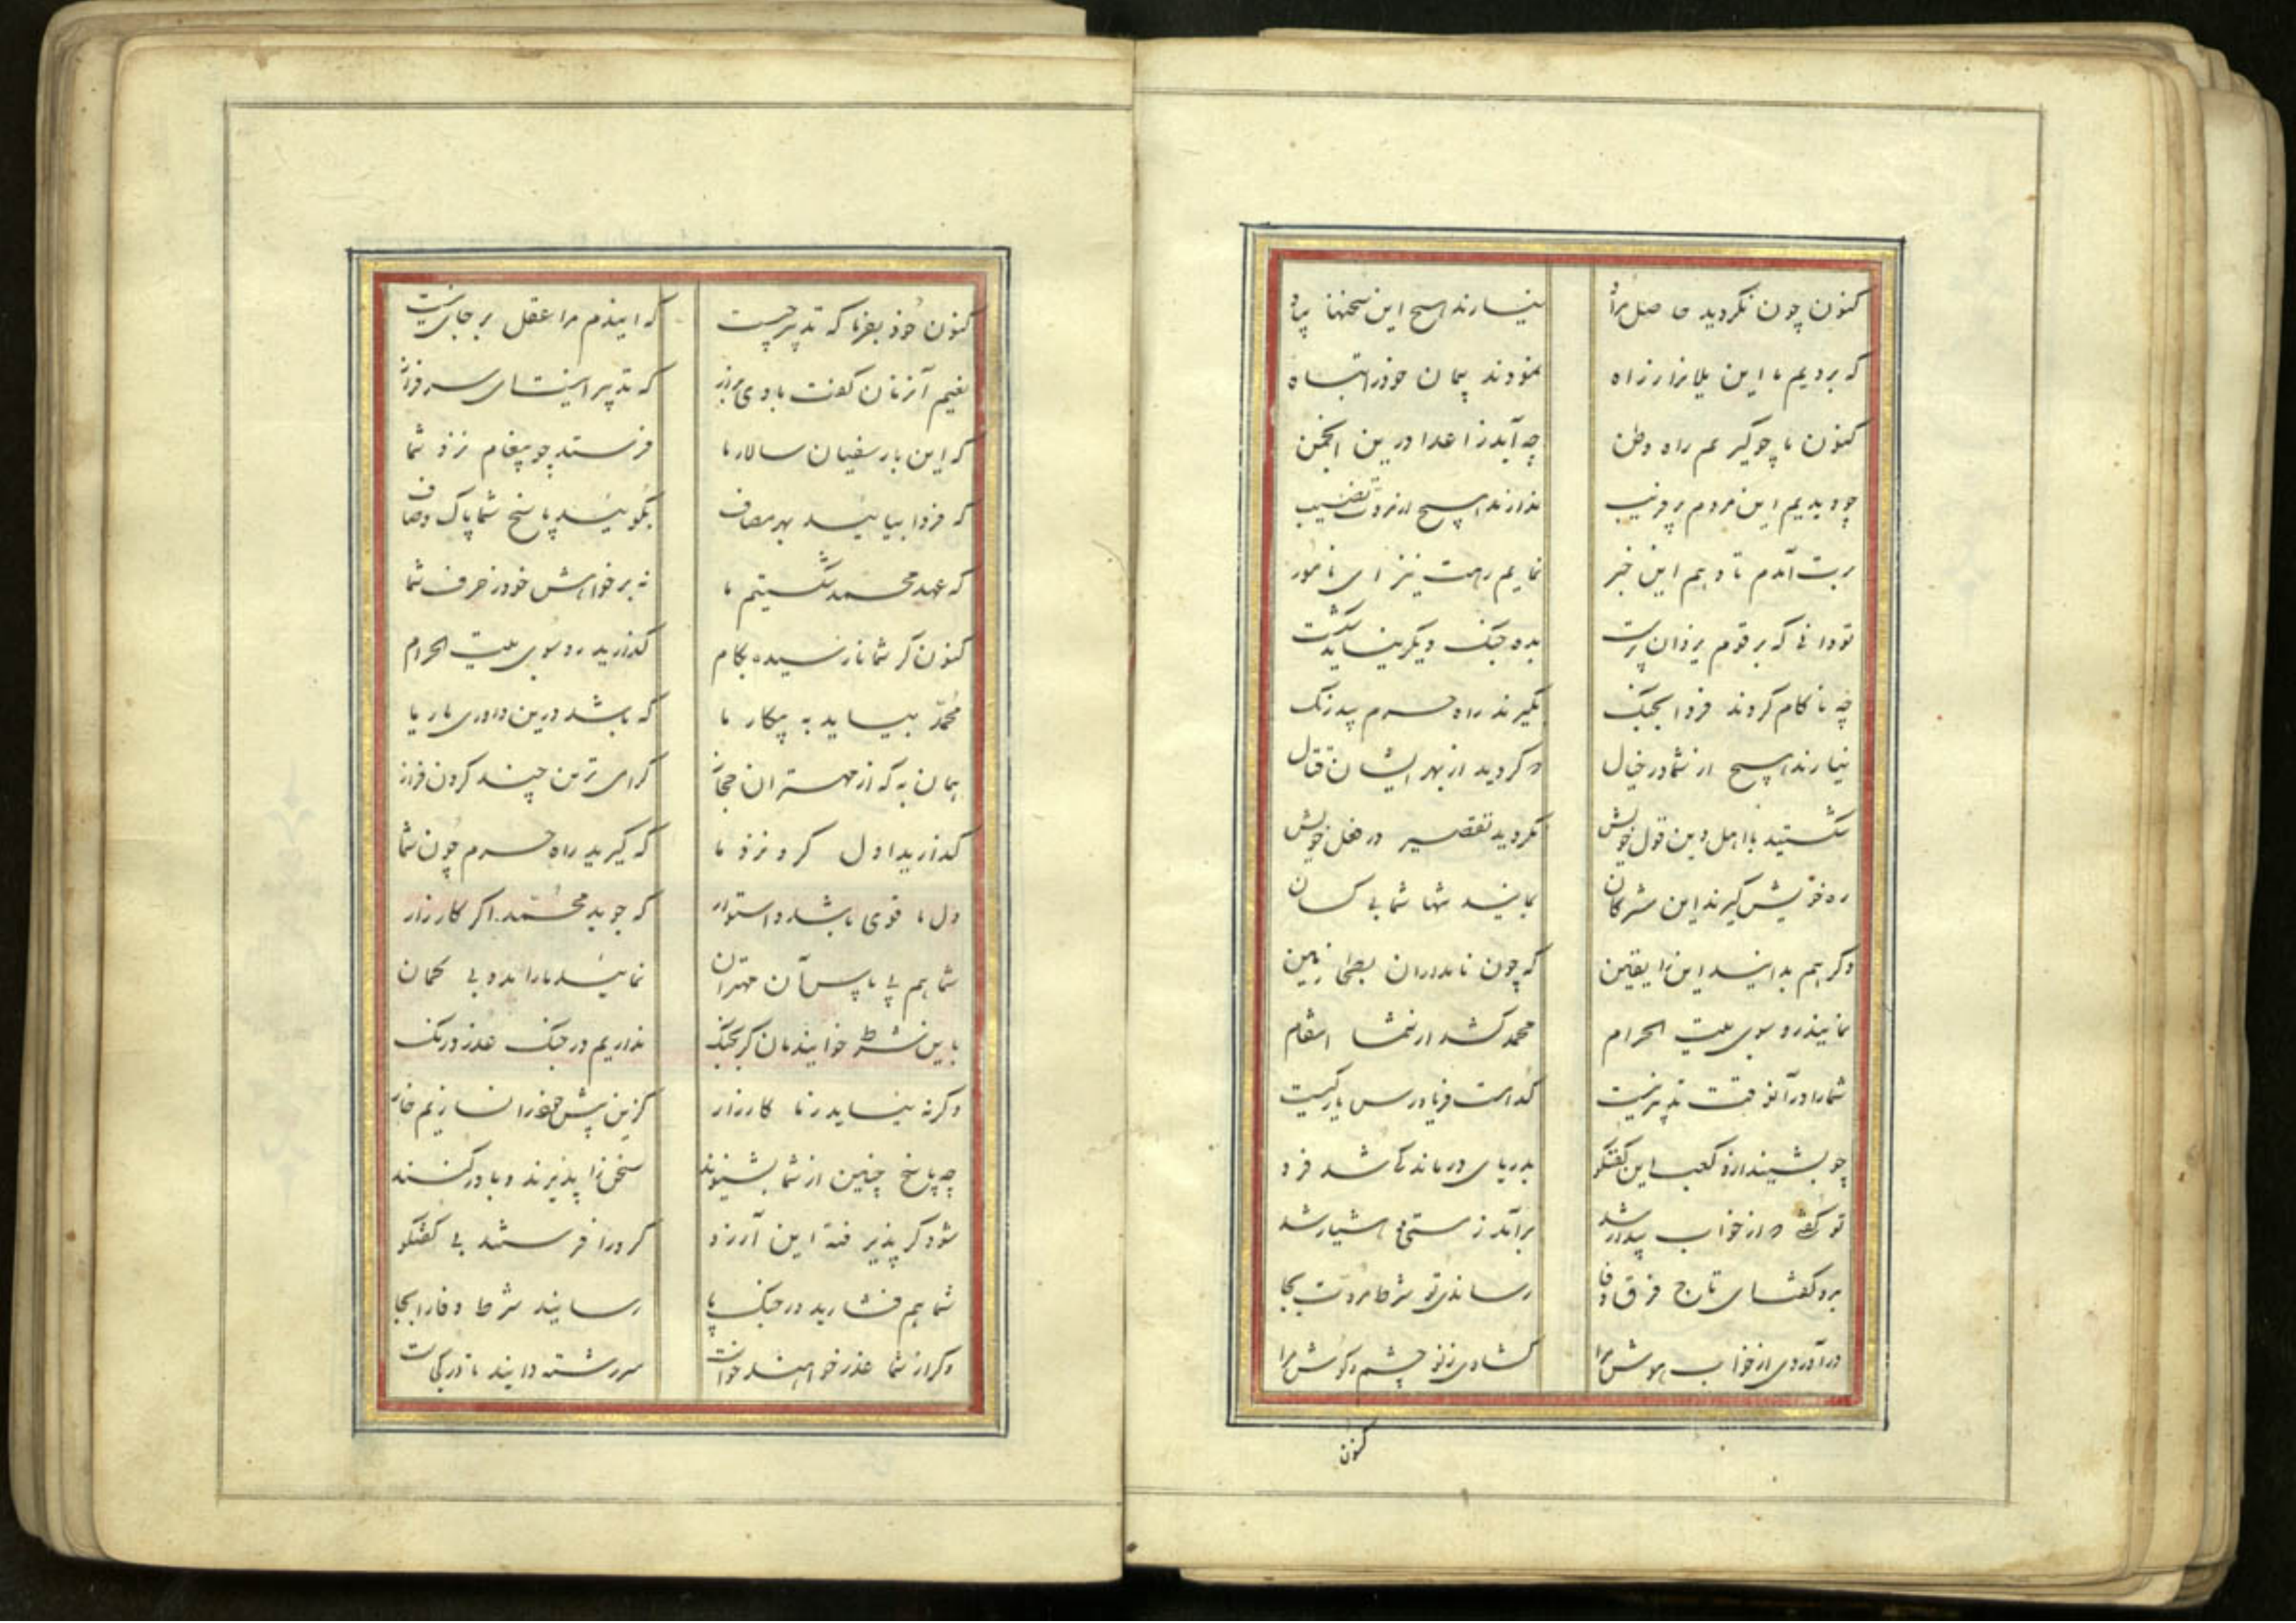 کنون چون نکردید حاصل مراد نیارند هیچ این سخنها بیاد
که بردیم ما این بلا را ز راه نمودند پیمان خود را تباه
کنون تا چو گیریم راه وطن چه آید ز اعدا درین انجمن
چو دیدیم این مردم پرفریب ندارند هیچ از مروت نصیب
برت آمدم تا دهم این خبر نمایم رهت نیز ای نامور
تو دانی که بر قوم یزدان پرست بده جنگ دیگر نیاید شکست
چه ناکام کردند فردا بجنگ بگیرند راه حرم بیدرنگ
نیارند هیچ از شما در خیال که کردید از بهر ایشان قتال
شکستید با اهل دین قول خویش نکردید تقصیر در فعل خویش
ره خویش گیرند این مشرکان بمانید تنها شما بی کسان
دگر هم بدانید این را یقین که چون نامداران بطحا زمین
نمایند رو سوی بیت الحرام محمد کشد از شما انتقام
شما را در آنوقت تدبیر چیست کدامست فریادرس یار کیست
چو بشنید ازو کعب این گفتگو بدریای درماندگی شد فرو
تو گفتی که از خواب بیدار شد برآمد ز مستی و هشیار شد
بدو گفت ای تاج فرق وفا رساندی تو شرط مروت بجا
درآوردی از خواب هوش مرا گشادی ز نو چشم و گوش مرا
کنون
کنون خود بفرما که تدبیر چیست که ایندم مرا عقل بر جای نیست
نعیم آنزمان گفت با وی براز که تدبیر اینست ای سرفراز
که این بار سفیان سالار ما فرستد چو پیغام نزد شما
که فردا بیایید بهر مصاف بگویید پاسخ شما پاک و صاف
که عهد محمد شکستیم ما نه بر خواهش خود ز حرف شما
کنون گر شما نارسیده بکام گذارید رو سوی بیت الحرام
محمد بیاید به پیکار ما که باشد درین داوری یار ما
همان به که از مهتران حجاز گرامی ترین چند گردن فراز
گذارید اول گرو نزد ما که گیرید راه حرم چون شما
دل ما قوی باشد و استوار که جوید محمد اگر کارزار
شما هم پی پاس آن مهتران نمایید ما را مدد بی گمان
باین شرط خوانیدمان گر بجنگ نداریم در جنگ عذر و درنگ
وگرنه نیاید ز ما کارزار کزین بیش خود را نسازیم خار
چه پاسخ چنین از شما بشنوند سخن را پذیرند و باور کنند
شود گر پذیرفته این آرزو گرو را فرستند بی گفتگو
شما هم فشارید در جنگ پا رسانید شرط وفا را بجا
وگر از شما عذر خواهند خواست سررشته دانید